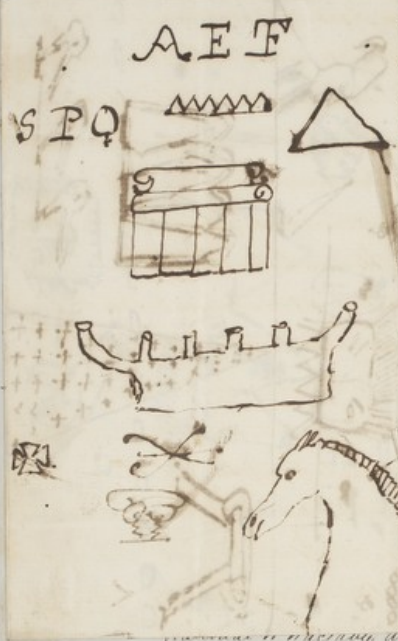 A E F
S P Q